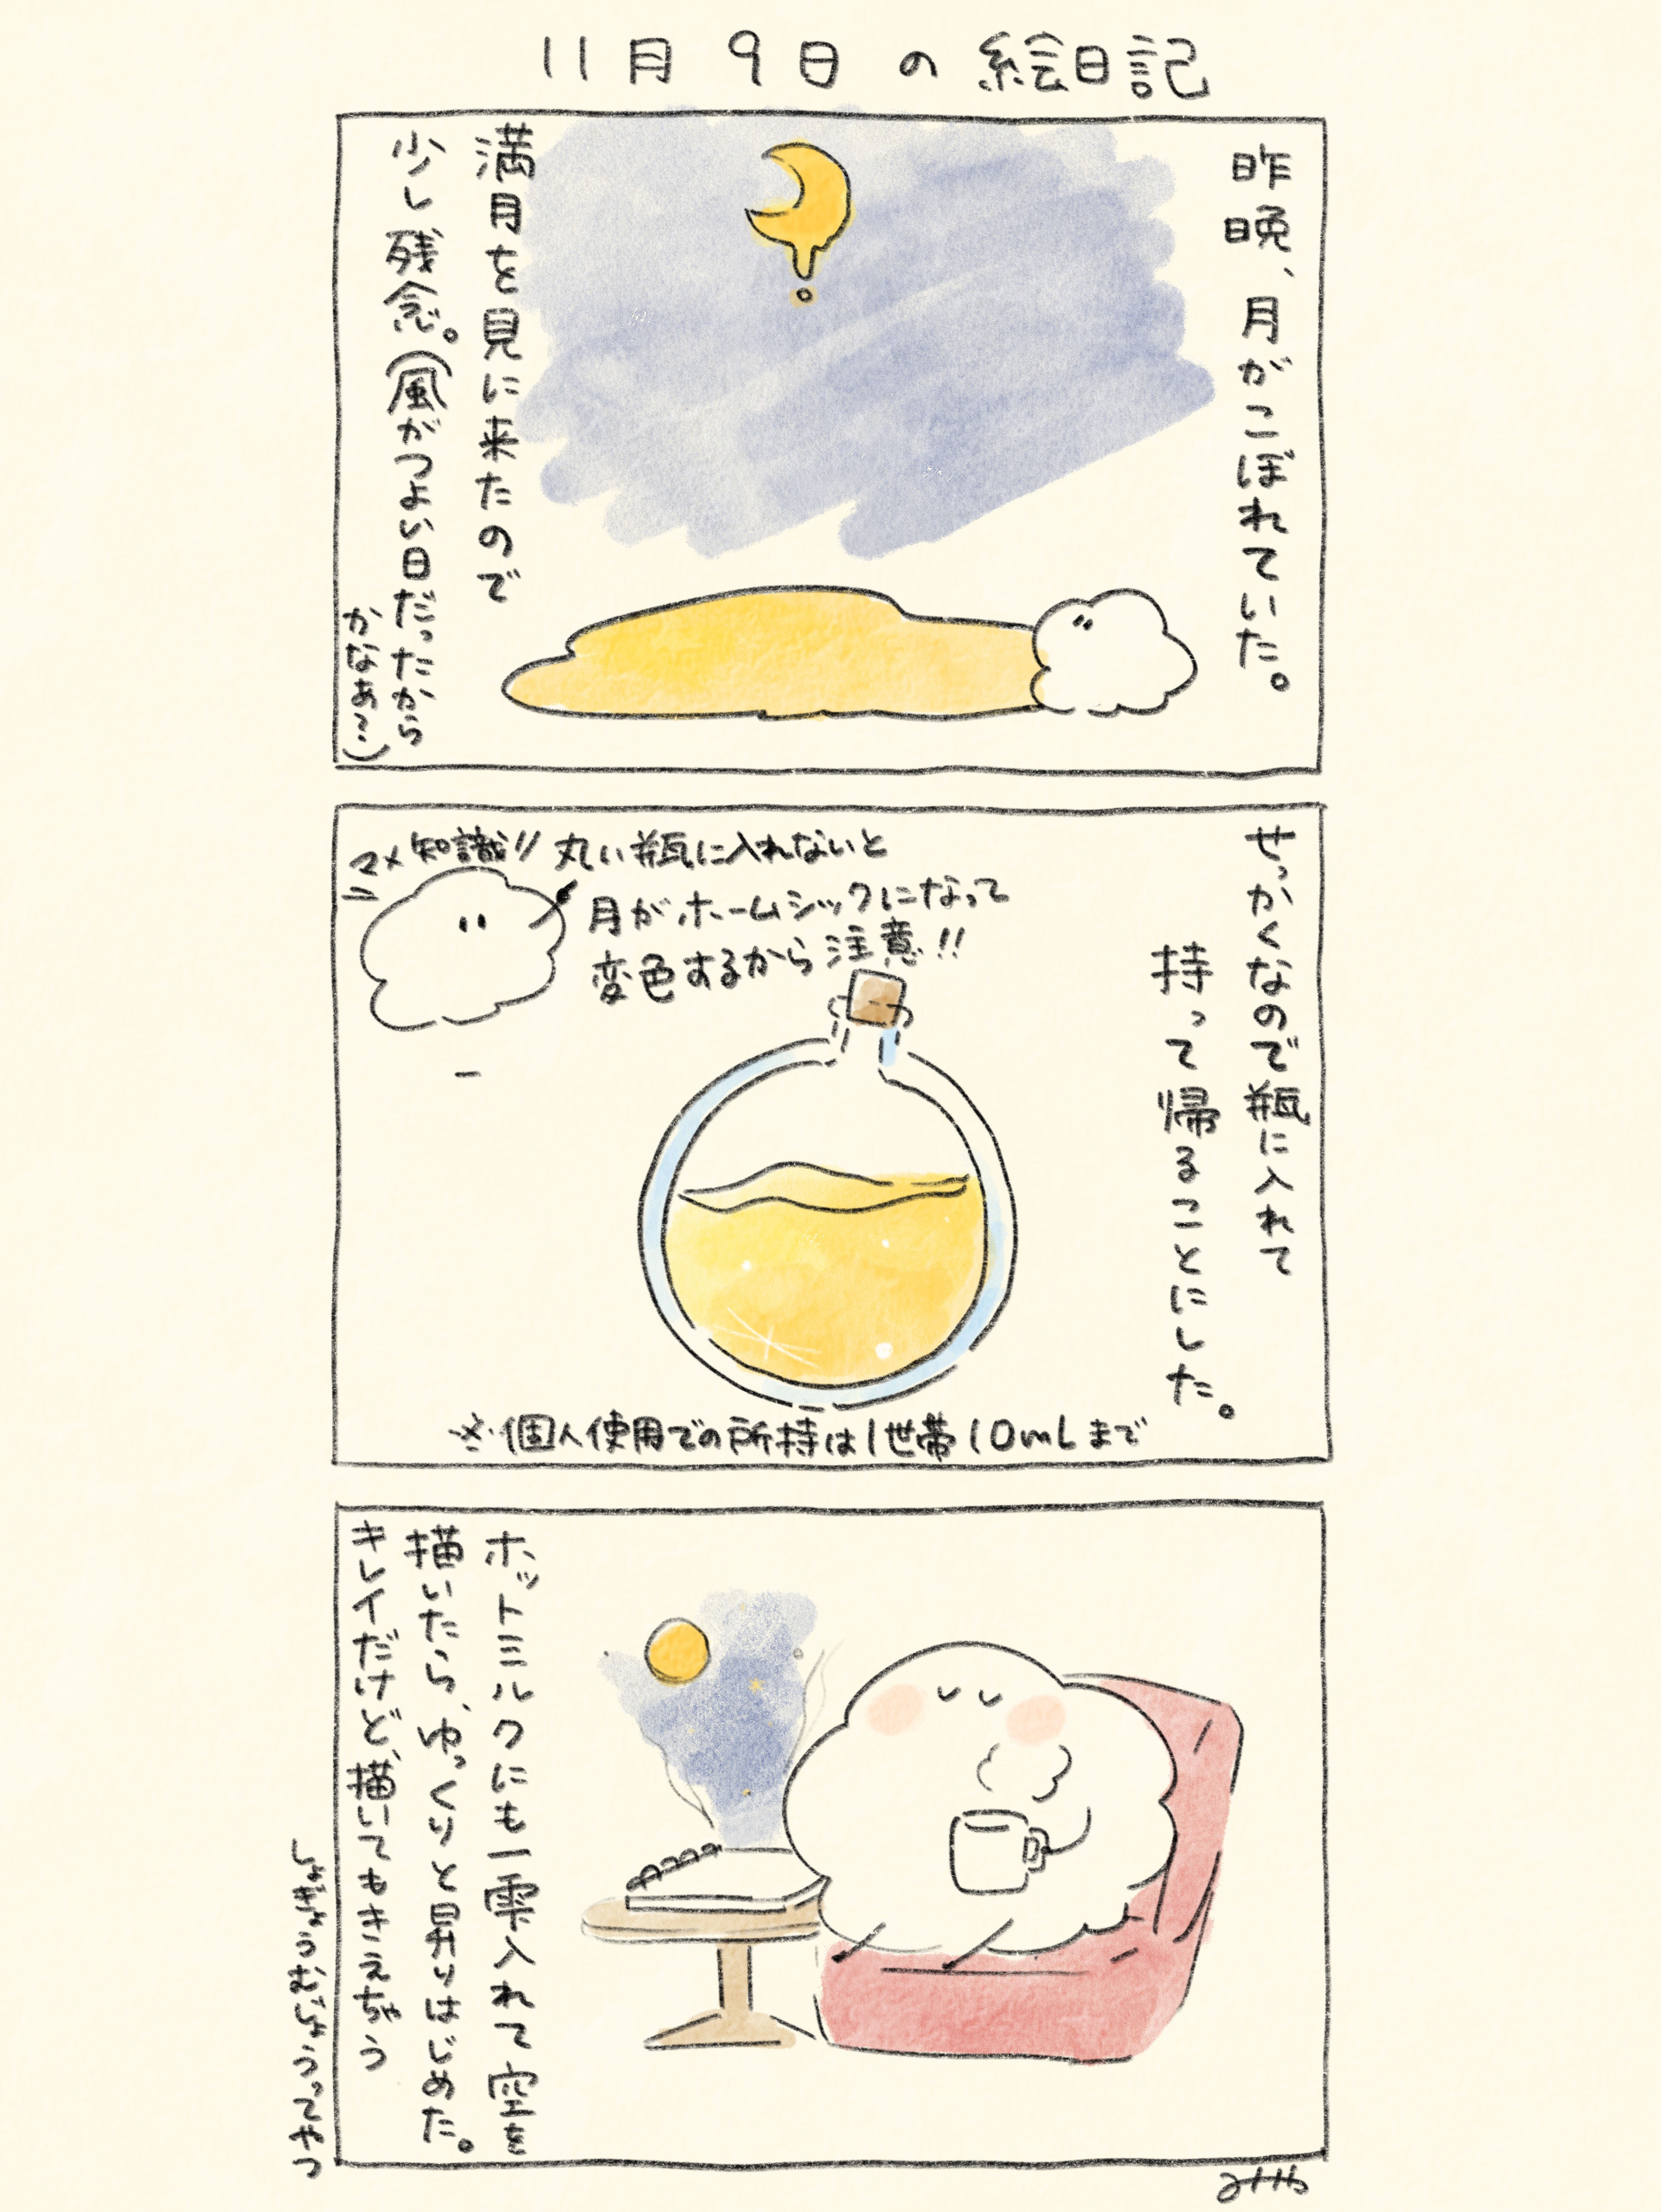 11月9日の絵日記
昨晩、月がこぼれていた。
満月を見に来たので
少し残念。(風がつよい日だったから
かなぁ〜)
せっかくなので瓶に入れて
持って帰ることにした。
マメ知識!! 丸い瓶に入れないと
月がホームシックになって
変色するから注意!!
※個人使用での所持は1世帯10mLまで
ホットミルクにも一雫入れて空を
描いたら、ゆっくりと昇りはじめた。
キレイだけど、描いてもきえちゃう
しょぎょうむじょうってやつ